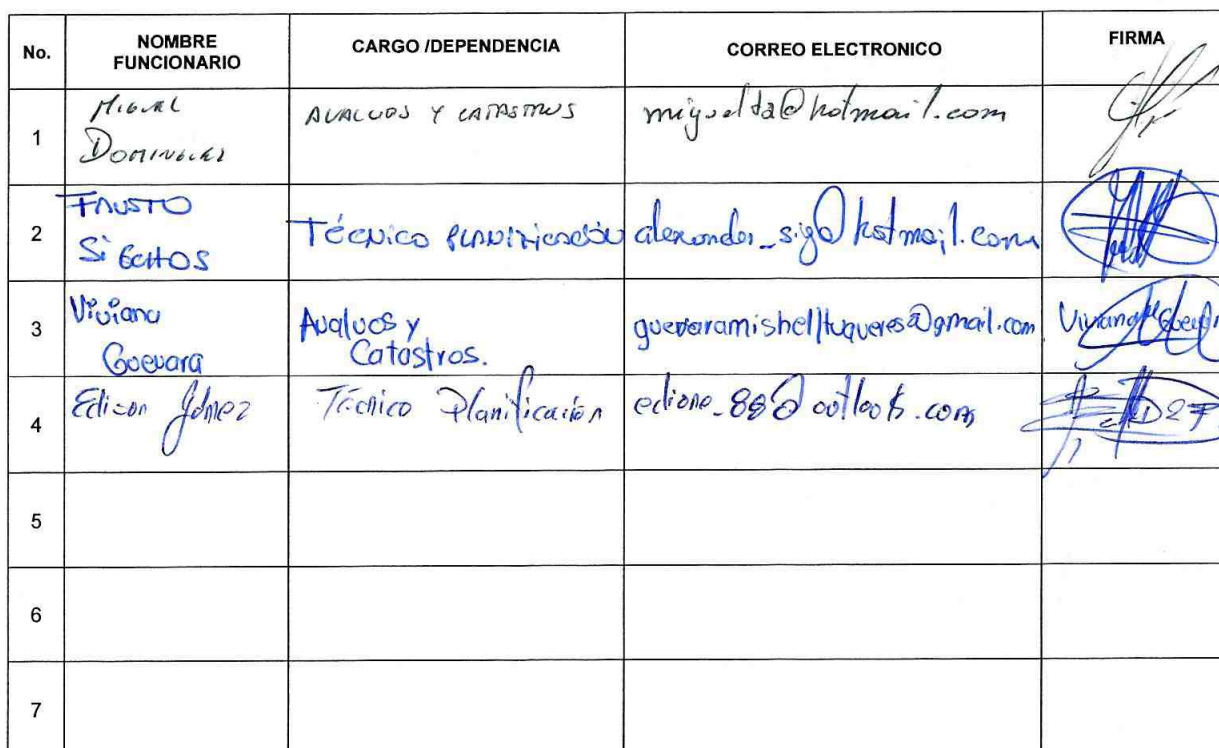 No. NOMBRE FUNCIONARIO CARGO /DEPENDENCIA CORREO ELECTRONICO FIRMA
1 Miguel Dominguez AVALUOS Y CATASTROS miguelda@hotmail.com
2 FAUSTO SiGCHOS TÉCNICO PLANIFICACIÓN alexander_sig@hotmail.com
3 Viviana Guevara Avaluos y Catastros. guevaramishelltuqueres@gmail.com Viviana Guevara
4 Edison Gómez Técnico Planificación
5
6
7